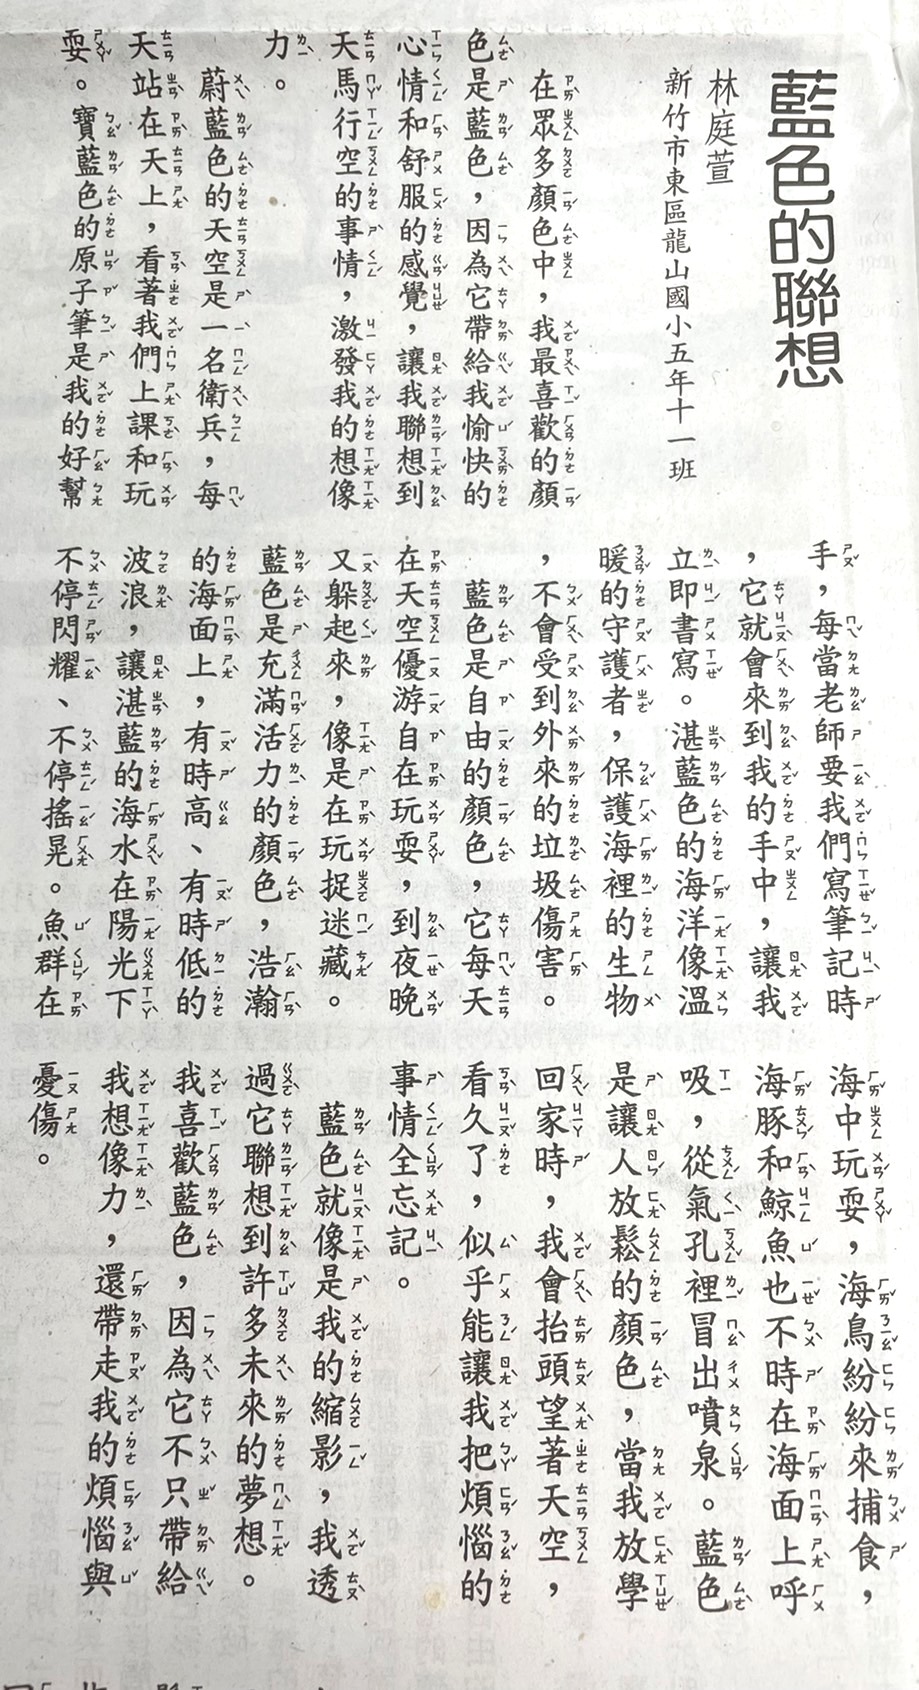 藍色的聯想
林庭萱
新竹市東區龍山國小五年十一班
在眾多顏色中，我最喜歡的顏
色是藍色，因為它帶給我愉快的
心情和舒服的感覺，讓我聯想到
天馬行空的事情，激發我的想像
力。
蔚藍色的天空是一名衛兵，每
天站在天上，看著我們上課和玩
耍。寶藍色的原子筆是我的好幫
手，每當老師要我們寫筆記時
，它就會來到我的手中，讓我
立即書寫。湛藍色的海洋像溫
暖的守護者，保護海裡的生物
，不會受到外來的垃圾傷害。
藍色是自由的顏色，它每天
在天空優游自在玩耍，到夜晚
又躲起來，像是在玩捉迷藏。
藍色是充滿活力的顏色，浩瀚
的海面上，有時高、有時低的
波浪，讓湛藍的海水在陽光下
不停閃耀、不停搖晃。魚群在
海中玩耍，海鳥紛紛來捕食，
海豚和鯨魚也不時在海面上呼
吸，從氣孔裡冒出噴泉。藍色
是讓人放鬆的顏色，當我放學
回家時，我會抬頭望著天空，
看久了，似乎能讓我把煩惱的
事情全忘記。
藍色就像是我的縮影，我透
過它聯想到許多未來的夢想。
我喜歡藍色，因為它不只帶給
我想像力，還帶走我的煩惱與
憂傷。